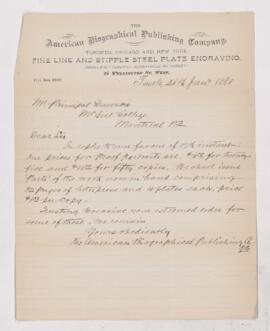 THE
American Biographical Publishing Company.
TORONTO, CHICAGO AND NEW YORK.
FINE LINE AND STIPPLE STEEL PLATE ENGRAVING,
Toronto, 20th Jany 1881
Mr Principal Dawson
McGill College
Montreal P.Q.
Dear Sir
In reply to your favour of 17th instant.
Our prices for Proof Portraits are for Twenty
five and for fifty copies. We shall issue
Parts of the work now in hand comprising
pages of letterpress and plates each, price
per Copy.
Trusting to receive your esteemed order for
some of these. We remain
Yours obediently
The American Biographical Publishing Co